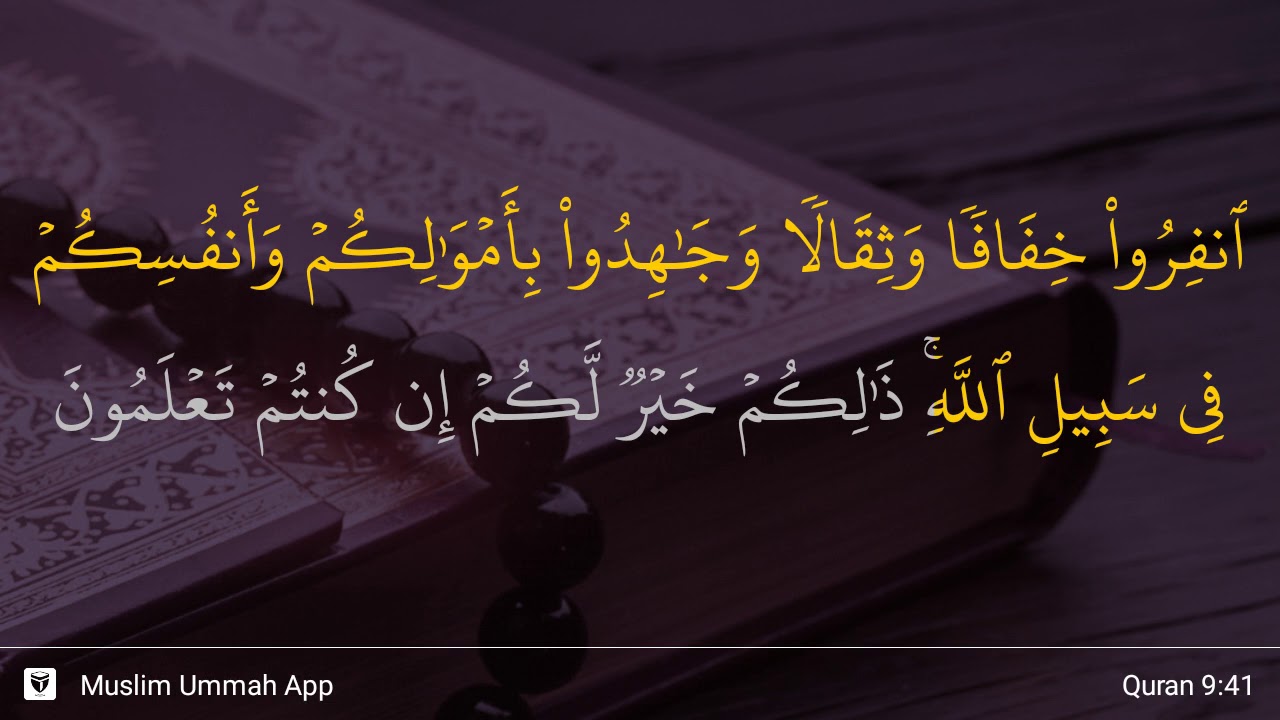 ٱنفِرُوا۟ خِفَافًۭا وَثِقَالًۭا وَجَـٰهِدُوا۟ بِأَمْوَٰلِكُمْ وَأَنفُسِكُمْ
فِى سَبِيلِ ٱللَّهِ ۚ ذَٰلِكُمْ خَيْرٌۭ لَّكُمْ إِن كُنتُمْ تَعْلَمُونَ
Muslim Ummah App
Quran 9:41